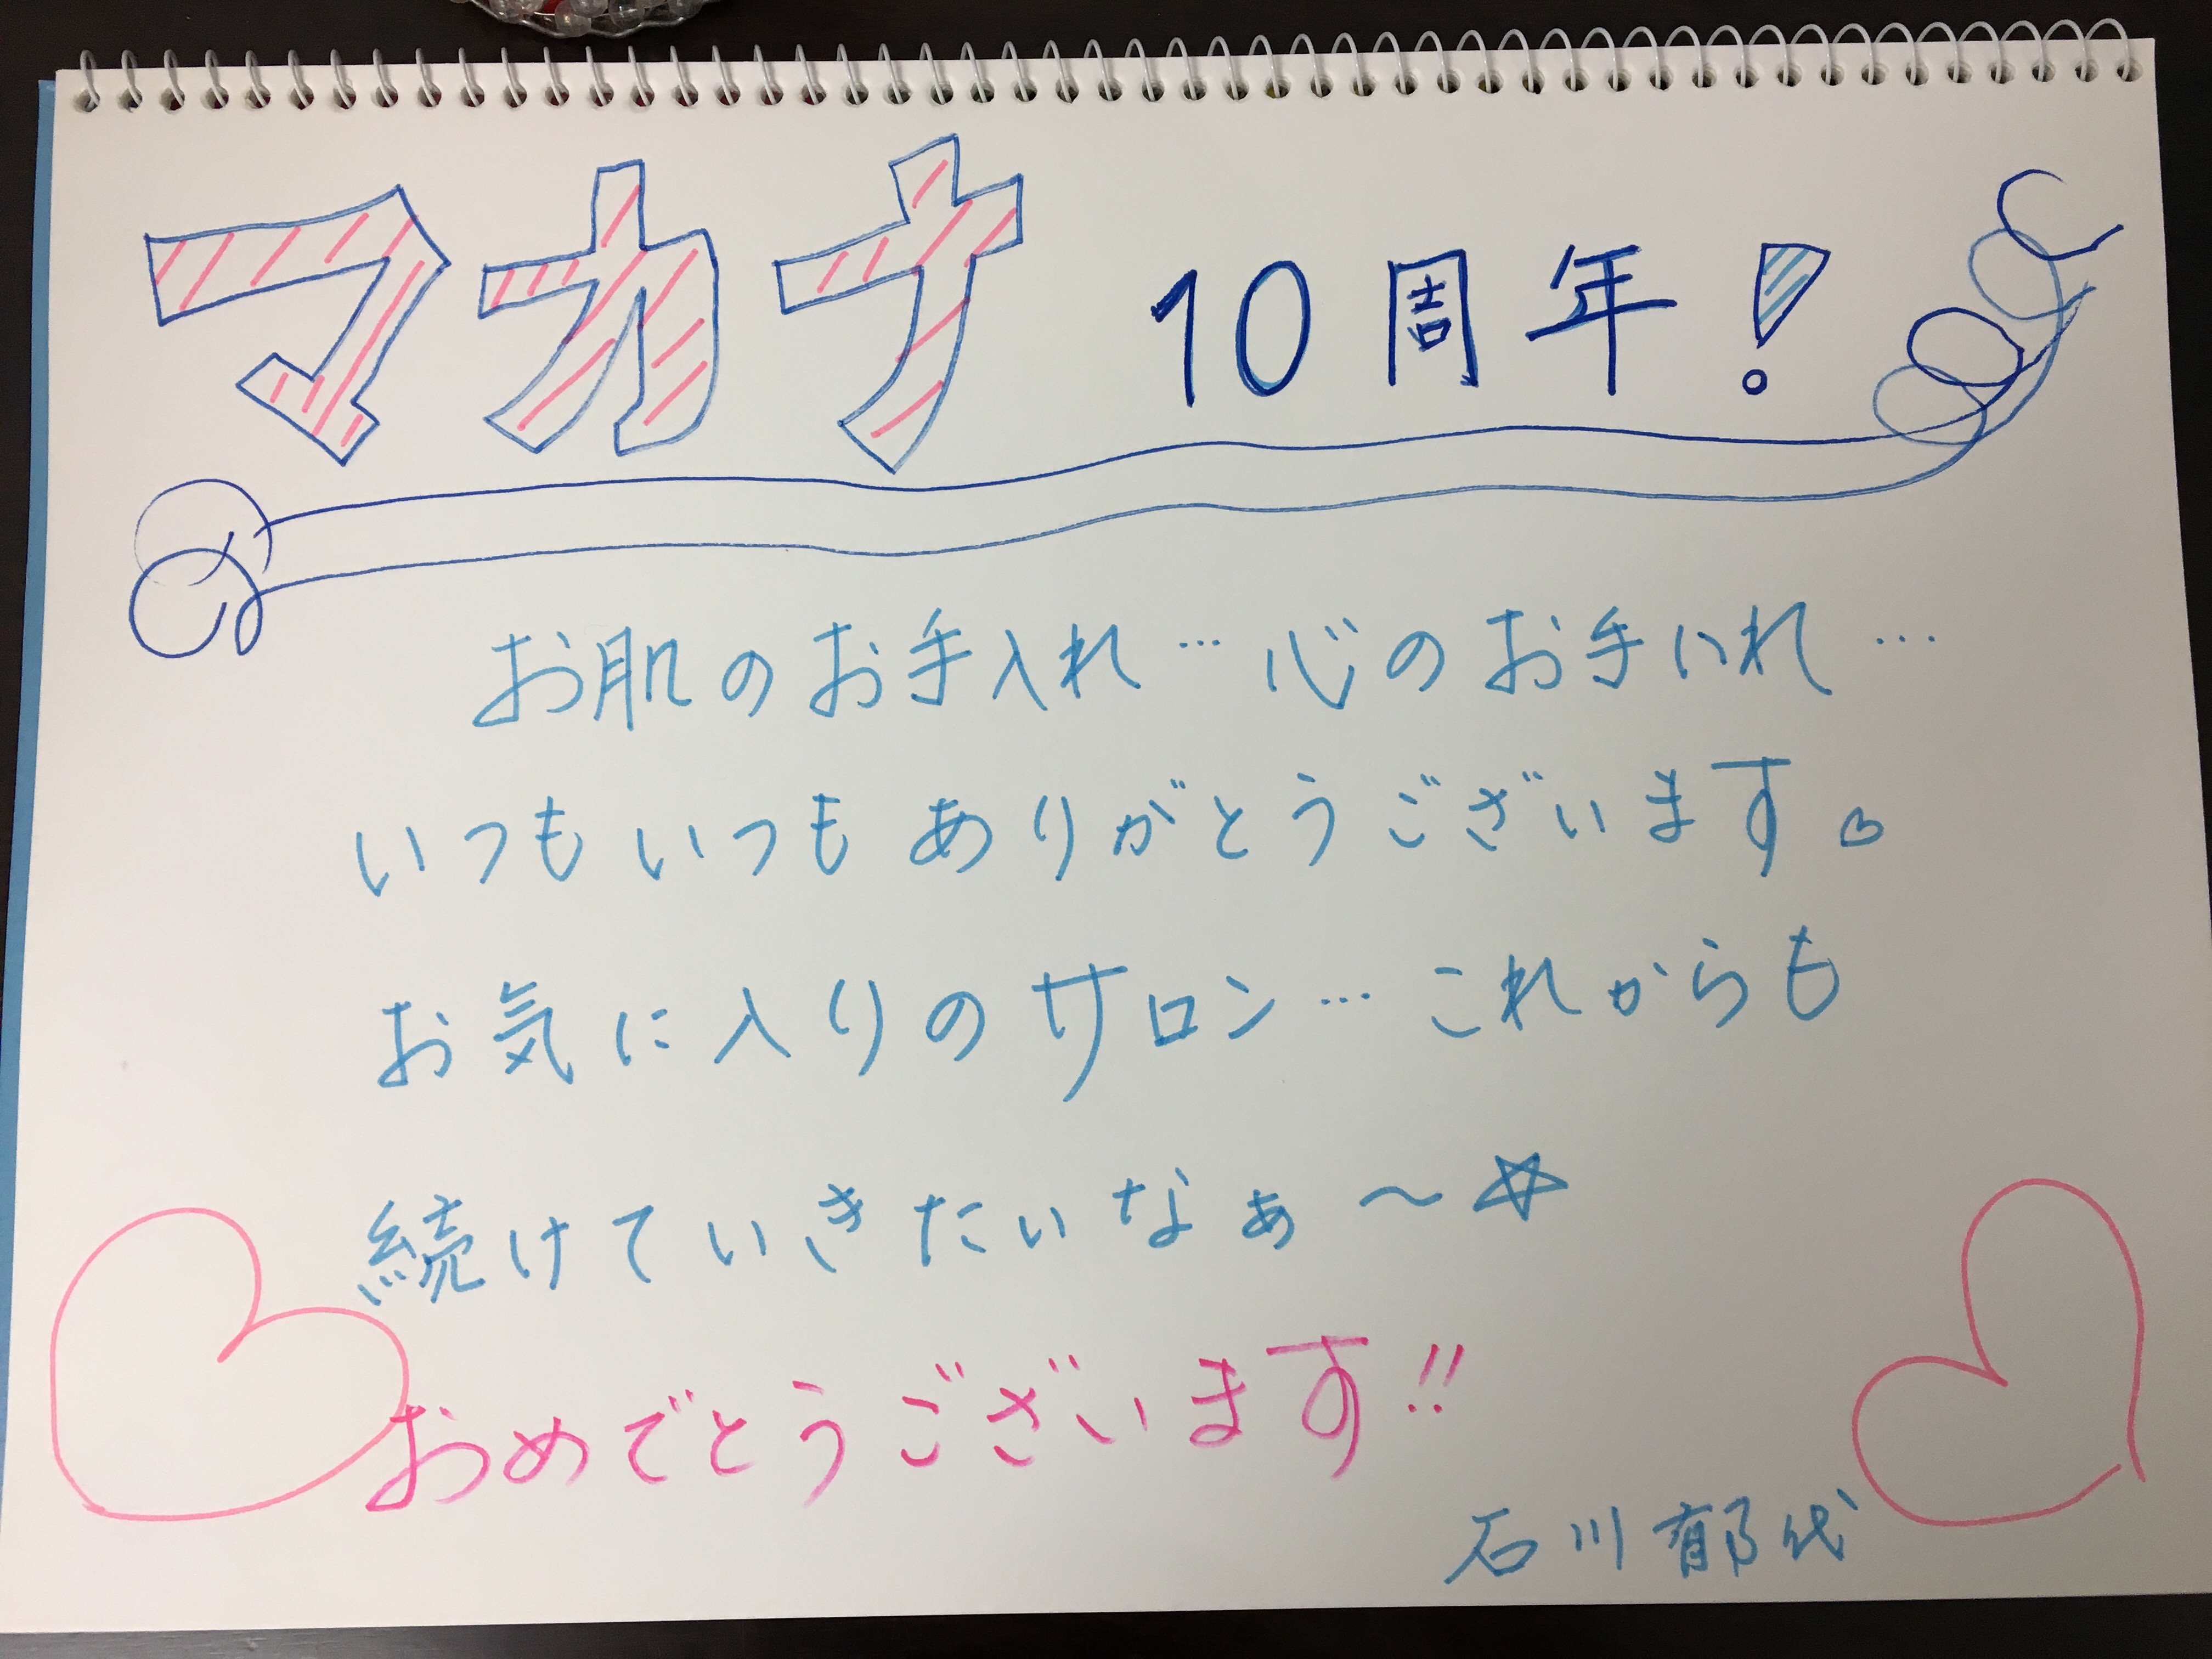 マカナ 10周年!
お肌のお手入れ…心のお手いれ…
いつもいつもありがとうございます♡
お気に入りのサロン…これからも
続けていきたいなぁ〜☆
おめでとうございます!!
石川郁代